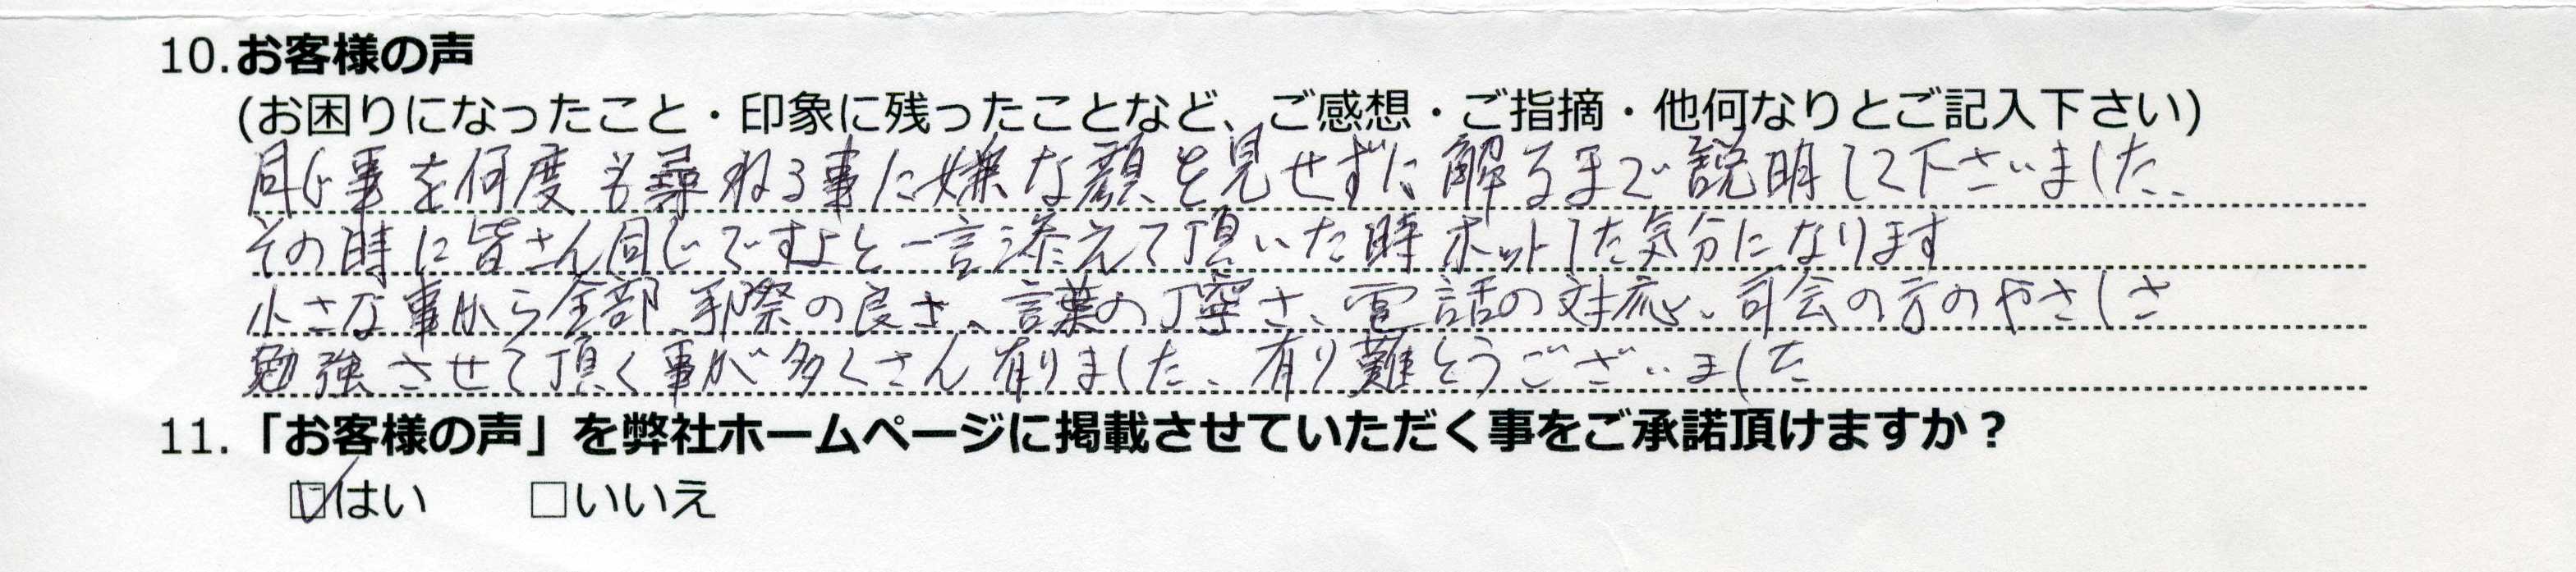 10.お客様の声
(お困りになったこと・印象に残ったことなど、ご感想・ご指摘・他何なりとご記入下さい)
同じ事を何度も尋ねる事に嫌な顔を見せずに解るまで説明して下さいました、
その時に皆さん同じですよと一言添えて頂いた時ホットした気分になります
小さな事から全部、手際の良さ、言葉の丁寧さ、電話の対応、司会の方のやさしさ
勉強させて頂く事が多くさん有りました、有り難とうございました
11.「お客様の声」を弊社ホームページに掲載させていただく事をご承諾頂けますか?
☑はい □いいえ